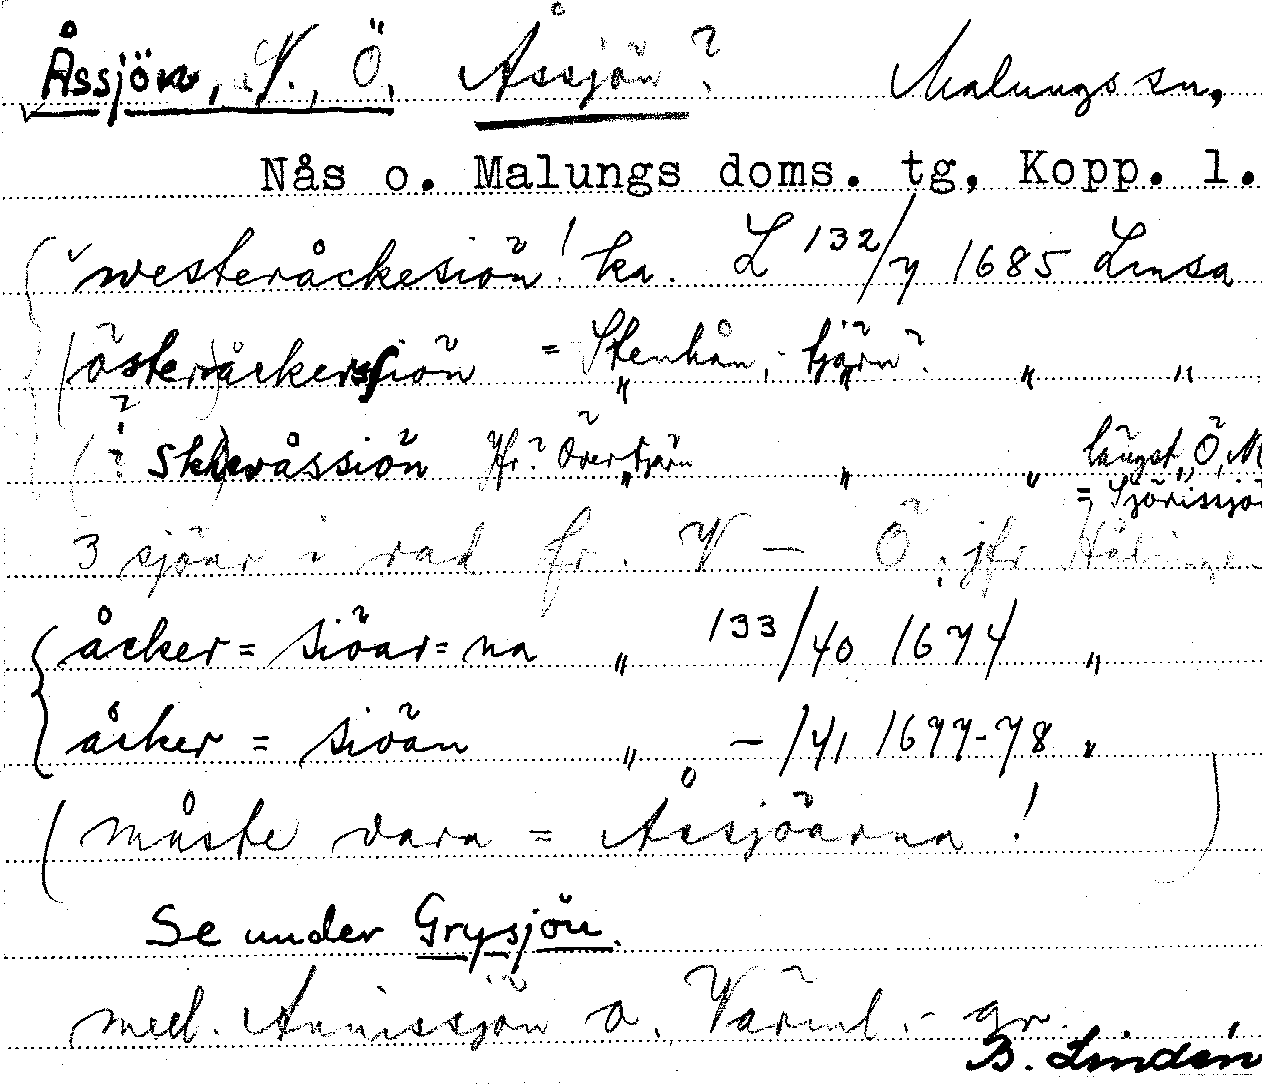 Åssjön, V., Ö, Åssjön? Malungs sn,
Nås o. Malungs doms. tg, Kopp. l.
westeråckesiön! ka. L 132/7 1685 Limsa
(öster)åckerssiön = Stenhån, -tjärn? " "
? Skåssiön Jfr? Övertjärn " " längst Ö, M
= Sjörissjö
3 sjöar i rad fr. V — Ö, jfr
åcker=siöar=na " 133/40 1674 "
åcker=siöän " —/41 1677-78 "
(måste vara = Åssjöarna!)
Se under Grysjön.
mell. Annissjön o. Värml.-gr.
B. Lindén